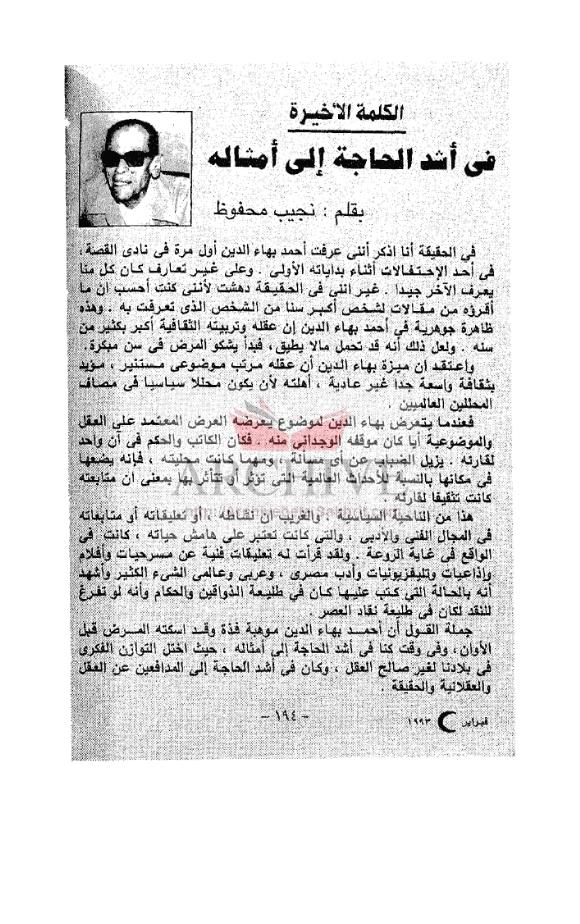 الكلمة الأخيرة
فى أشد الحاجة إلى أمثاله
بقلم : نجيب محفوظ
فى الحقيقة أنا اذكر أننى عرفت أحمد بهاء الدين أول مرة فى نادى القصة ،
فى أحد الإحتفالات أثناء بداياته الأولى . وعلى غير تعارف كان كل منا
يعرف الآخر جيدا . غير اننى فى الحقيقة دهشت لأننى كنت أحسب ان ما
أقرؤه من مقالات لشخص أكبر سنا من الشخص الذى تعرفت به . وهذه
ظاهرة جوهرية فى أحمد بهاء الدين إن عقله وتربيته الثقافية أكبر بكثير من
سنه . ولعل ذلك أنه قد تحمل مالا يطيق ، فبدأ يشكو المرض فى سن مبكرة.
وأعتقد ان ميزة بهاء الدين أن عقله مرتب موضوعى مستنير ، مؤيد
بثقافة واسعة جدا غير عادية ، أهلته لأن يكون محللا سياسيا فى مصاف
المحللين العالميين .
فعندما يتعرض بهاء الدين لموضوع يعرضه العرض المعتمد على العقل
والموضوعية أيا كان موقفه الوجدانى منه . فكان الكاتب والحكم فى آن واحد
لقارئه . يزيل الضباب عن أى مسألة ، ومهما كانت محليته ، فإنه يضعها
فى مكانها بالنسبة للأحداث العالمية التى تؤثر أو تتأثر بها بمعنى ان متابعته
كانت تثقيفا لقارئه .
هذا من الناحية السياسية . والغريب ان نشاطه ، أو تعليقاته أو متابعاته
فى المجال الفنى والأدبى ، والتى كانت تعتبر على هامش حياته ، كانت فى
الواقع فى غاية الروعة . ولقد قرأت له تعليقات فنية عن مسرحيات وأفلام
وإذاعيات وتليفزيونيات وأدب مصرى ، وعربى وعالمى الشىء الكثير وأشهد
أنه بالحالة التى كتب عليها كان فى طليعة الذواقين والحكام وأنه لو تفرغ
للنقد لكان فى طليعة نقاد العصر .
جملة القول أن أحمد بهاء الدين موهبة فذة وقد اسكته المرض قبل
الأوان، وفى وقت كنا فى أشد الحاجة إلى أمثاله ، حيث اختل التوازن الفكرى
فى بلادنا لغير صالح العقل ، وكان فى أشد الحاجة إلى المدافعين عن العقل
والعقلانية والحقيقة .
فبراير ١٩٩٣
- ١٩٤ -
ARCHIVE